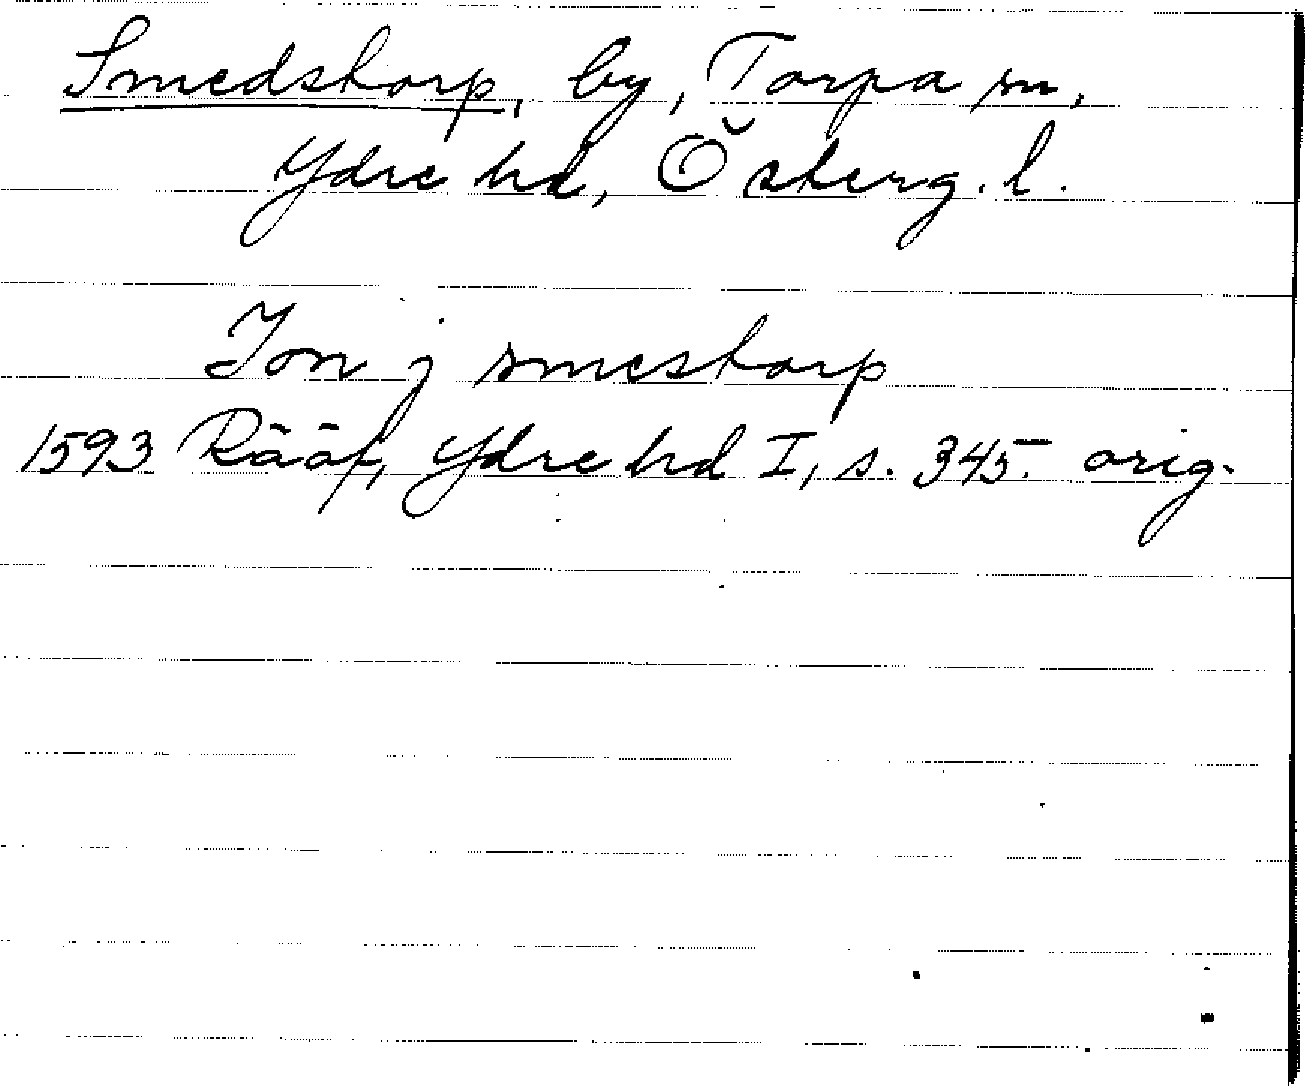 Smedstorp, by, Torpa sn,
Ydre hd, Österg. l.
Jon j smestorp
1593 Rääf, Ydre hd I, s. 345. orig.